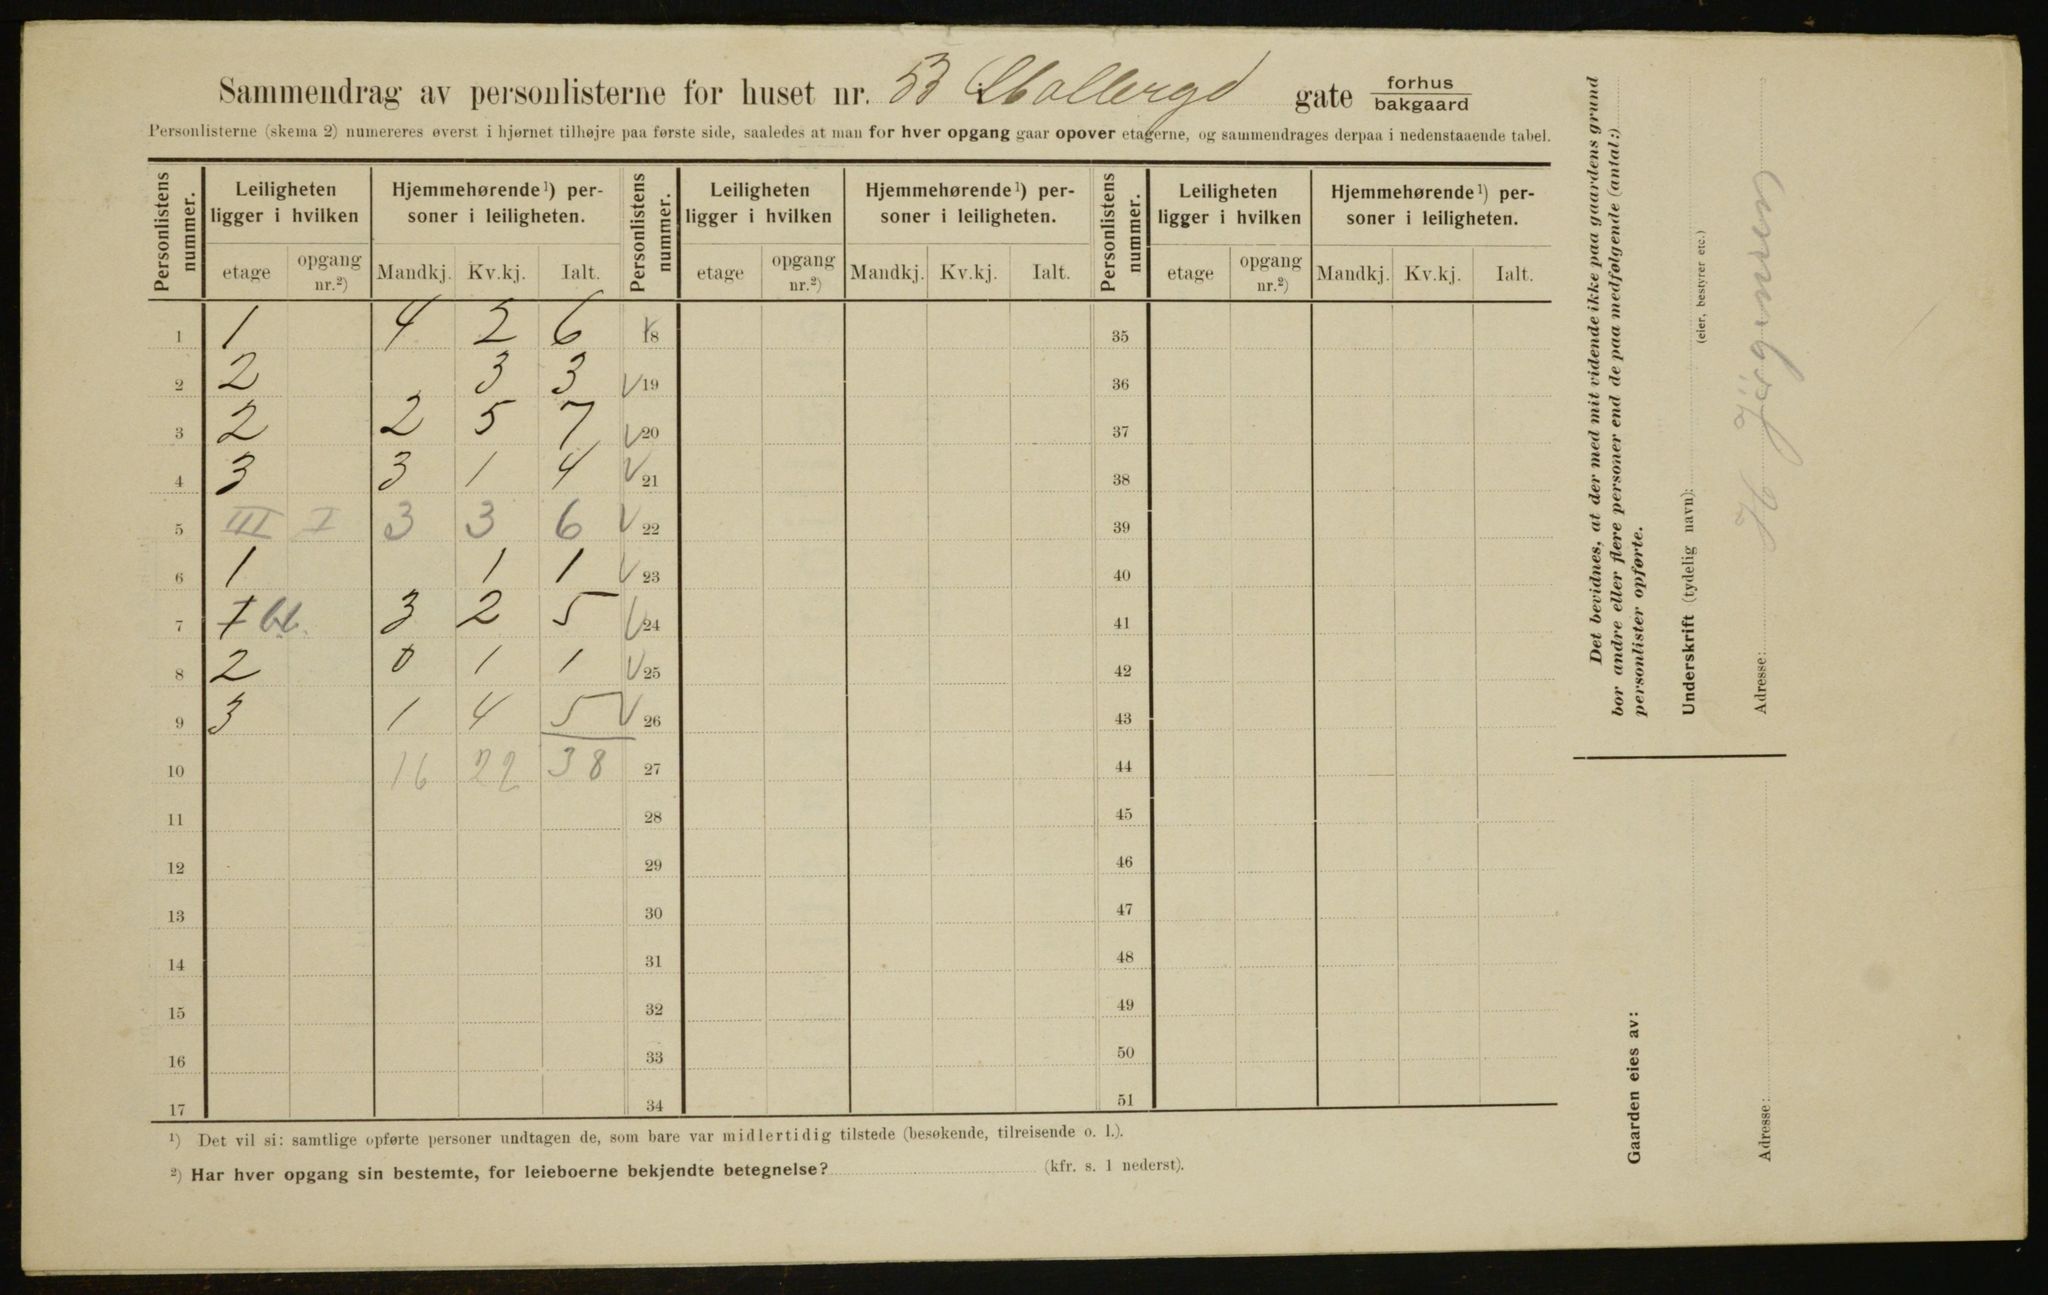 Sammendrag av personlisterne for huset nr. 53 Mollergd gate forhus
bakgaard
Personlisterne (skema 2) numereres øverst i hjørnet tilhøjre paa første side, saaledes at man for hver opgang gaar opover etagerne, og sammendrages derpaa i nedenstaaende tabel.
Personlistens nummer. Leiligheten ligger i hvilken Hjemmehørende ¹) personer i leiligheten. Personlistens nummer. Leiligheten ligger i hvilken Hjemmehørende ¹) personer i leiligheten. Personlistens nummer. Leiligheten ligger i hvilken Hjemmehørende ¹) personer i leiligheten.
etage opgang nr.²) Mandkj. Kv.kj. Ialt. etage opgang nr.²) Mandkj. Kv.kj. Ialt. etage opgang nr.²) Mandkj. Kv.kj. Ialt.
1 1 4 2 6 18 35
2 2 3 3 19 36
3 2 2 5 7 20 37
4 3 3 1 4 21 38
5 III I 3 3 6 22 39
6 1 1 1 23 40
7 I 3 2 5 24 41
8 2 0 1 1 25 42
9 3 1 4 5 26 43
10 16 22 38 27 44
11 28 45
12 29 46
13 30 47
14 31 48
15 32 49
16 33 50
17 34 51
¹) Det vil si: samtlige opførte personer undtagen de, som bare var midlertidig tilstede (besøkende, tilreisende o. l.).
²) Har hver opgang sin bestemte, for leieboerne bekjendte betegnelse? (kfr. s. 1 nederst).
Det bevidnes, at der med mit vidende ikke paa gaardens grund
bor andre eller flere personer end de paa medfølgende (antal:)
personlister opførte.
Underskrift (tydelig navn):
(eier, bestyrer etc.)
H Jörgensen
Adresse:
Gaarden eies av:
Adresse: